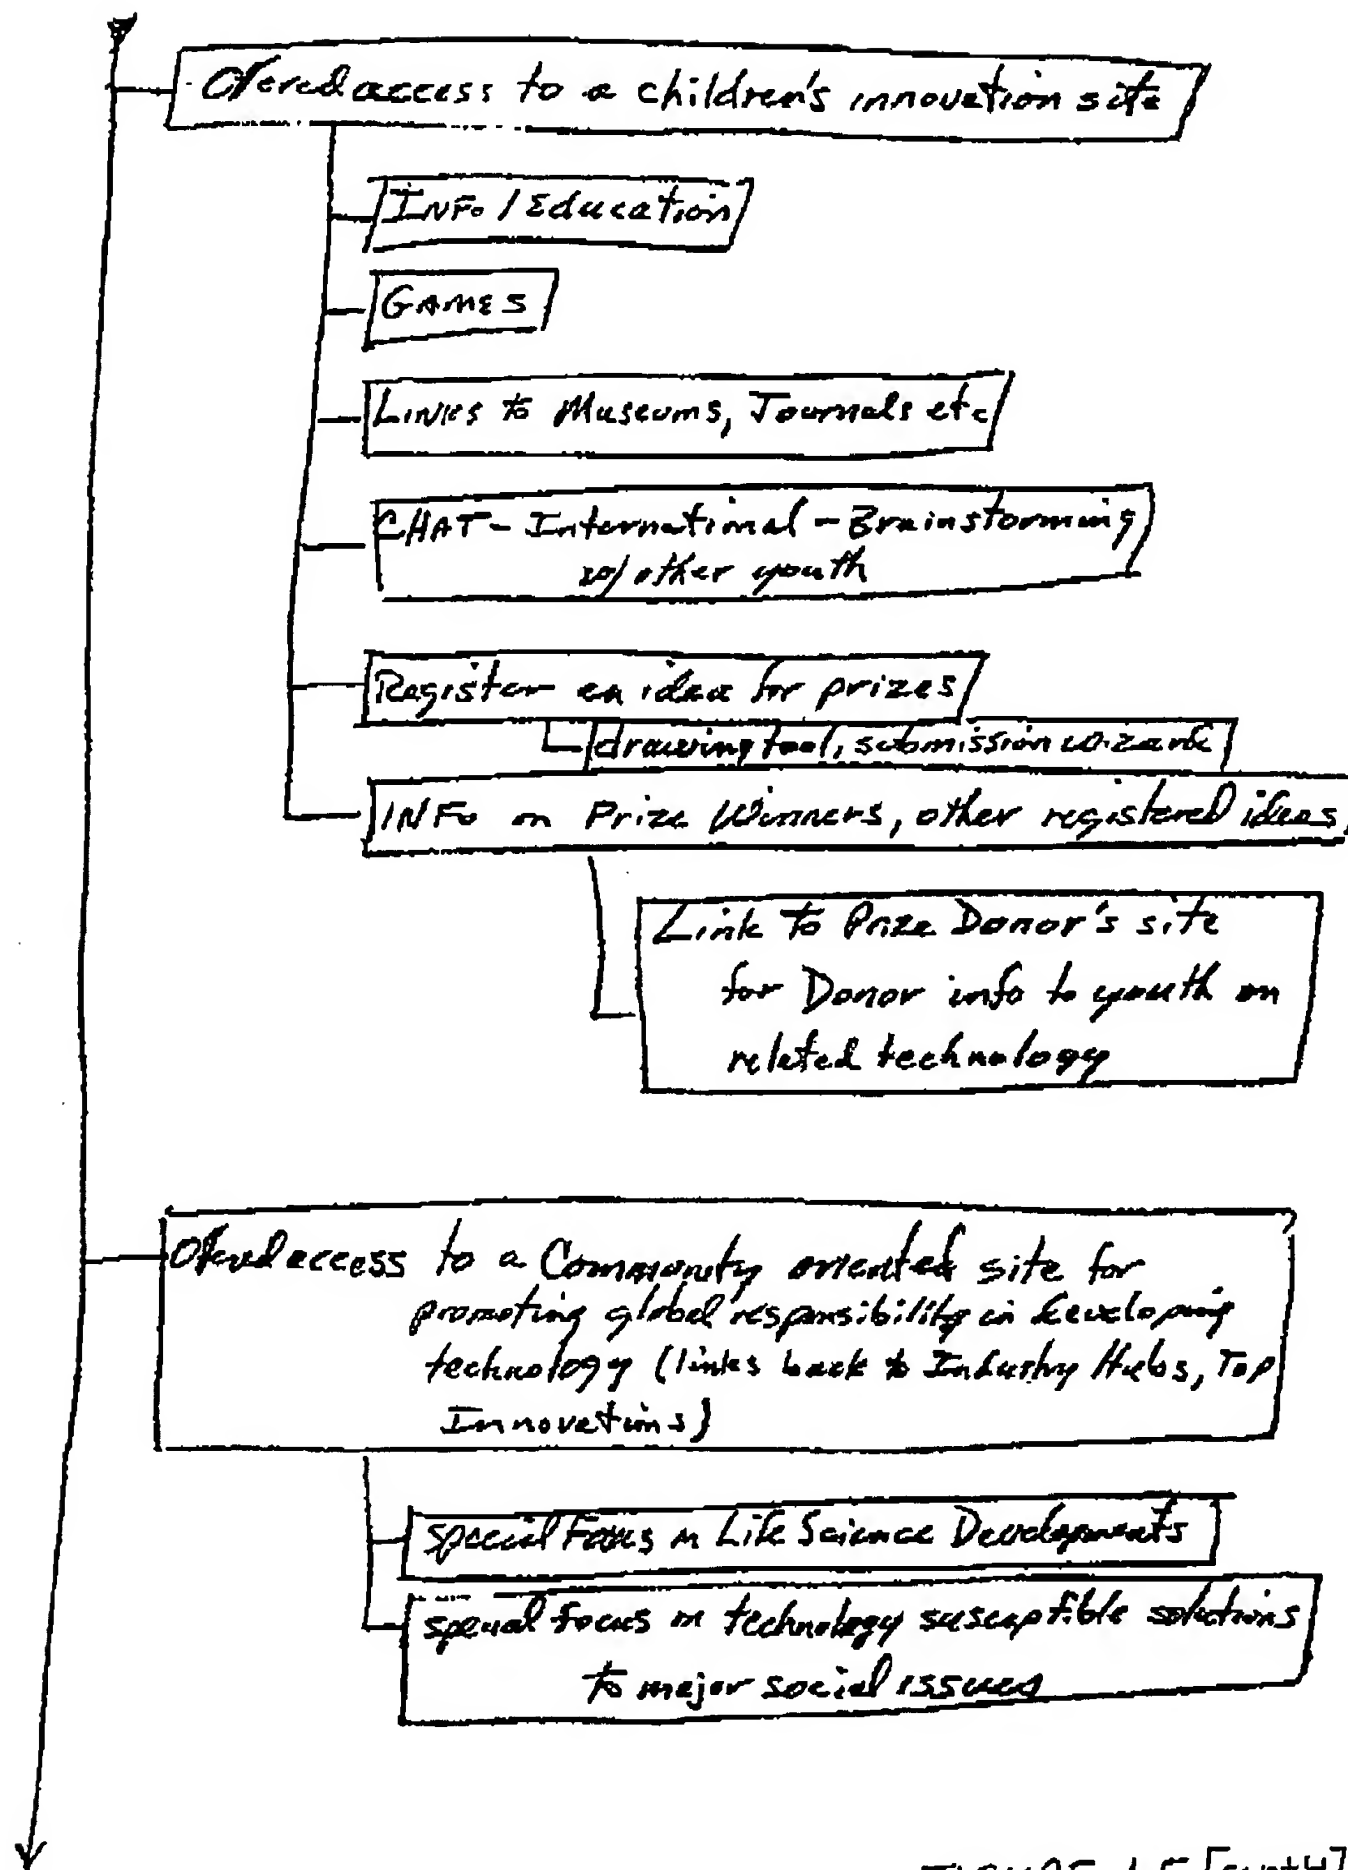 Offered access to a children's innovation site
INFO / Education
GAMES
LINKS to Museums, Journals etc
CHAT - International - Brainstorming
w/ other youth
Register an idea for prizes
drawing tool, submission wizard
INFO on Prize Winners, other registered ideas,
Link to Prize Donor's site
for Donor info to youth on
related technology
Offered access to a Community oriented site for
promoting global responsibility in developing
technology (links back to Industry Hubs, Top
Innovations)
special Focus on Life Science Developments
special focus on technology susceptible solutions
to major social issues